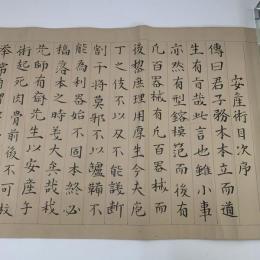 安産術目次序
傳曰君子務本本立而道
生有旨哉此言也雖小事
亦然有型鎔模范而後有
凡百器械有凡百器械而
後整庶理用厚生今夫庖
丁之伎不以刃不能議斷
割干将莫邪不以鑪鞴不
能為利器始不固本終必
槁落本之時義大矣哉我
先師有齋先生以安産子
術起死肉骨前後不可枚